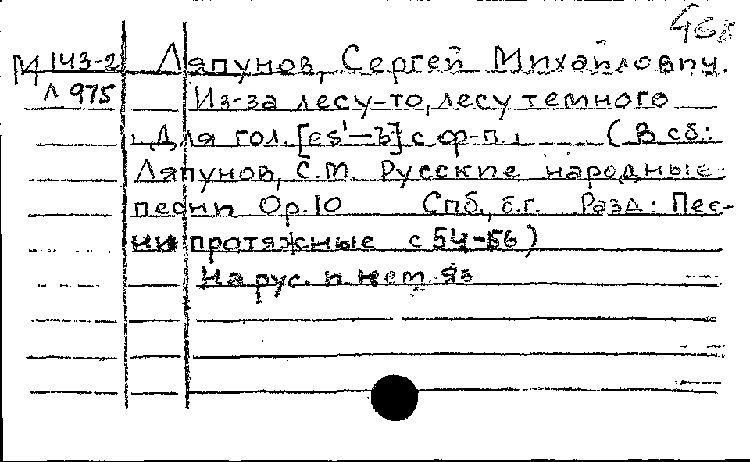 468
М 143-2 Ляпунов, Сергей Михайлович.
Л 975 Из-за лесу-то, лесу темного
Для гол. [es'—b] с ф-п. (В сб:
Ляпунов, С.М. Русские народные
песни Op.10 Спб., б.г. Разд: Пес-
ни протяжные с 54-56)
На рус. и нем. яз